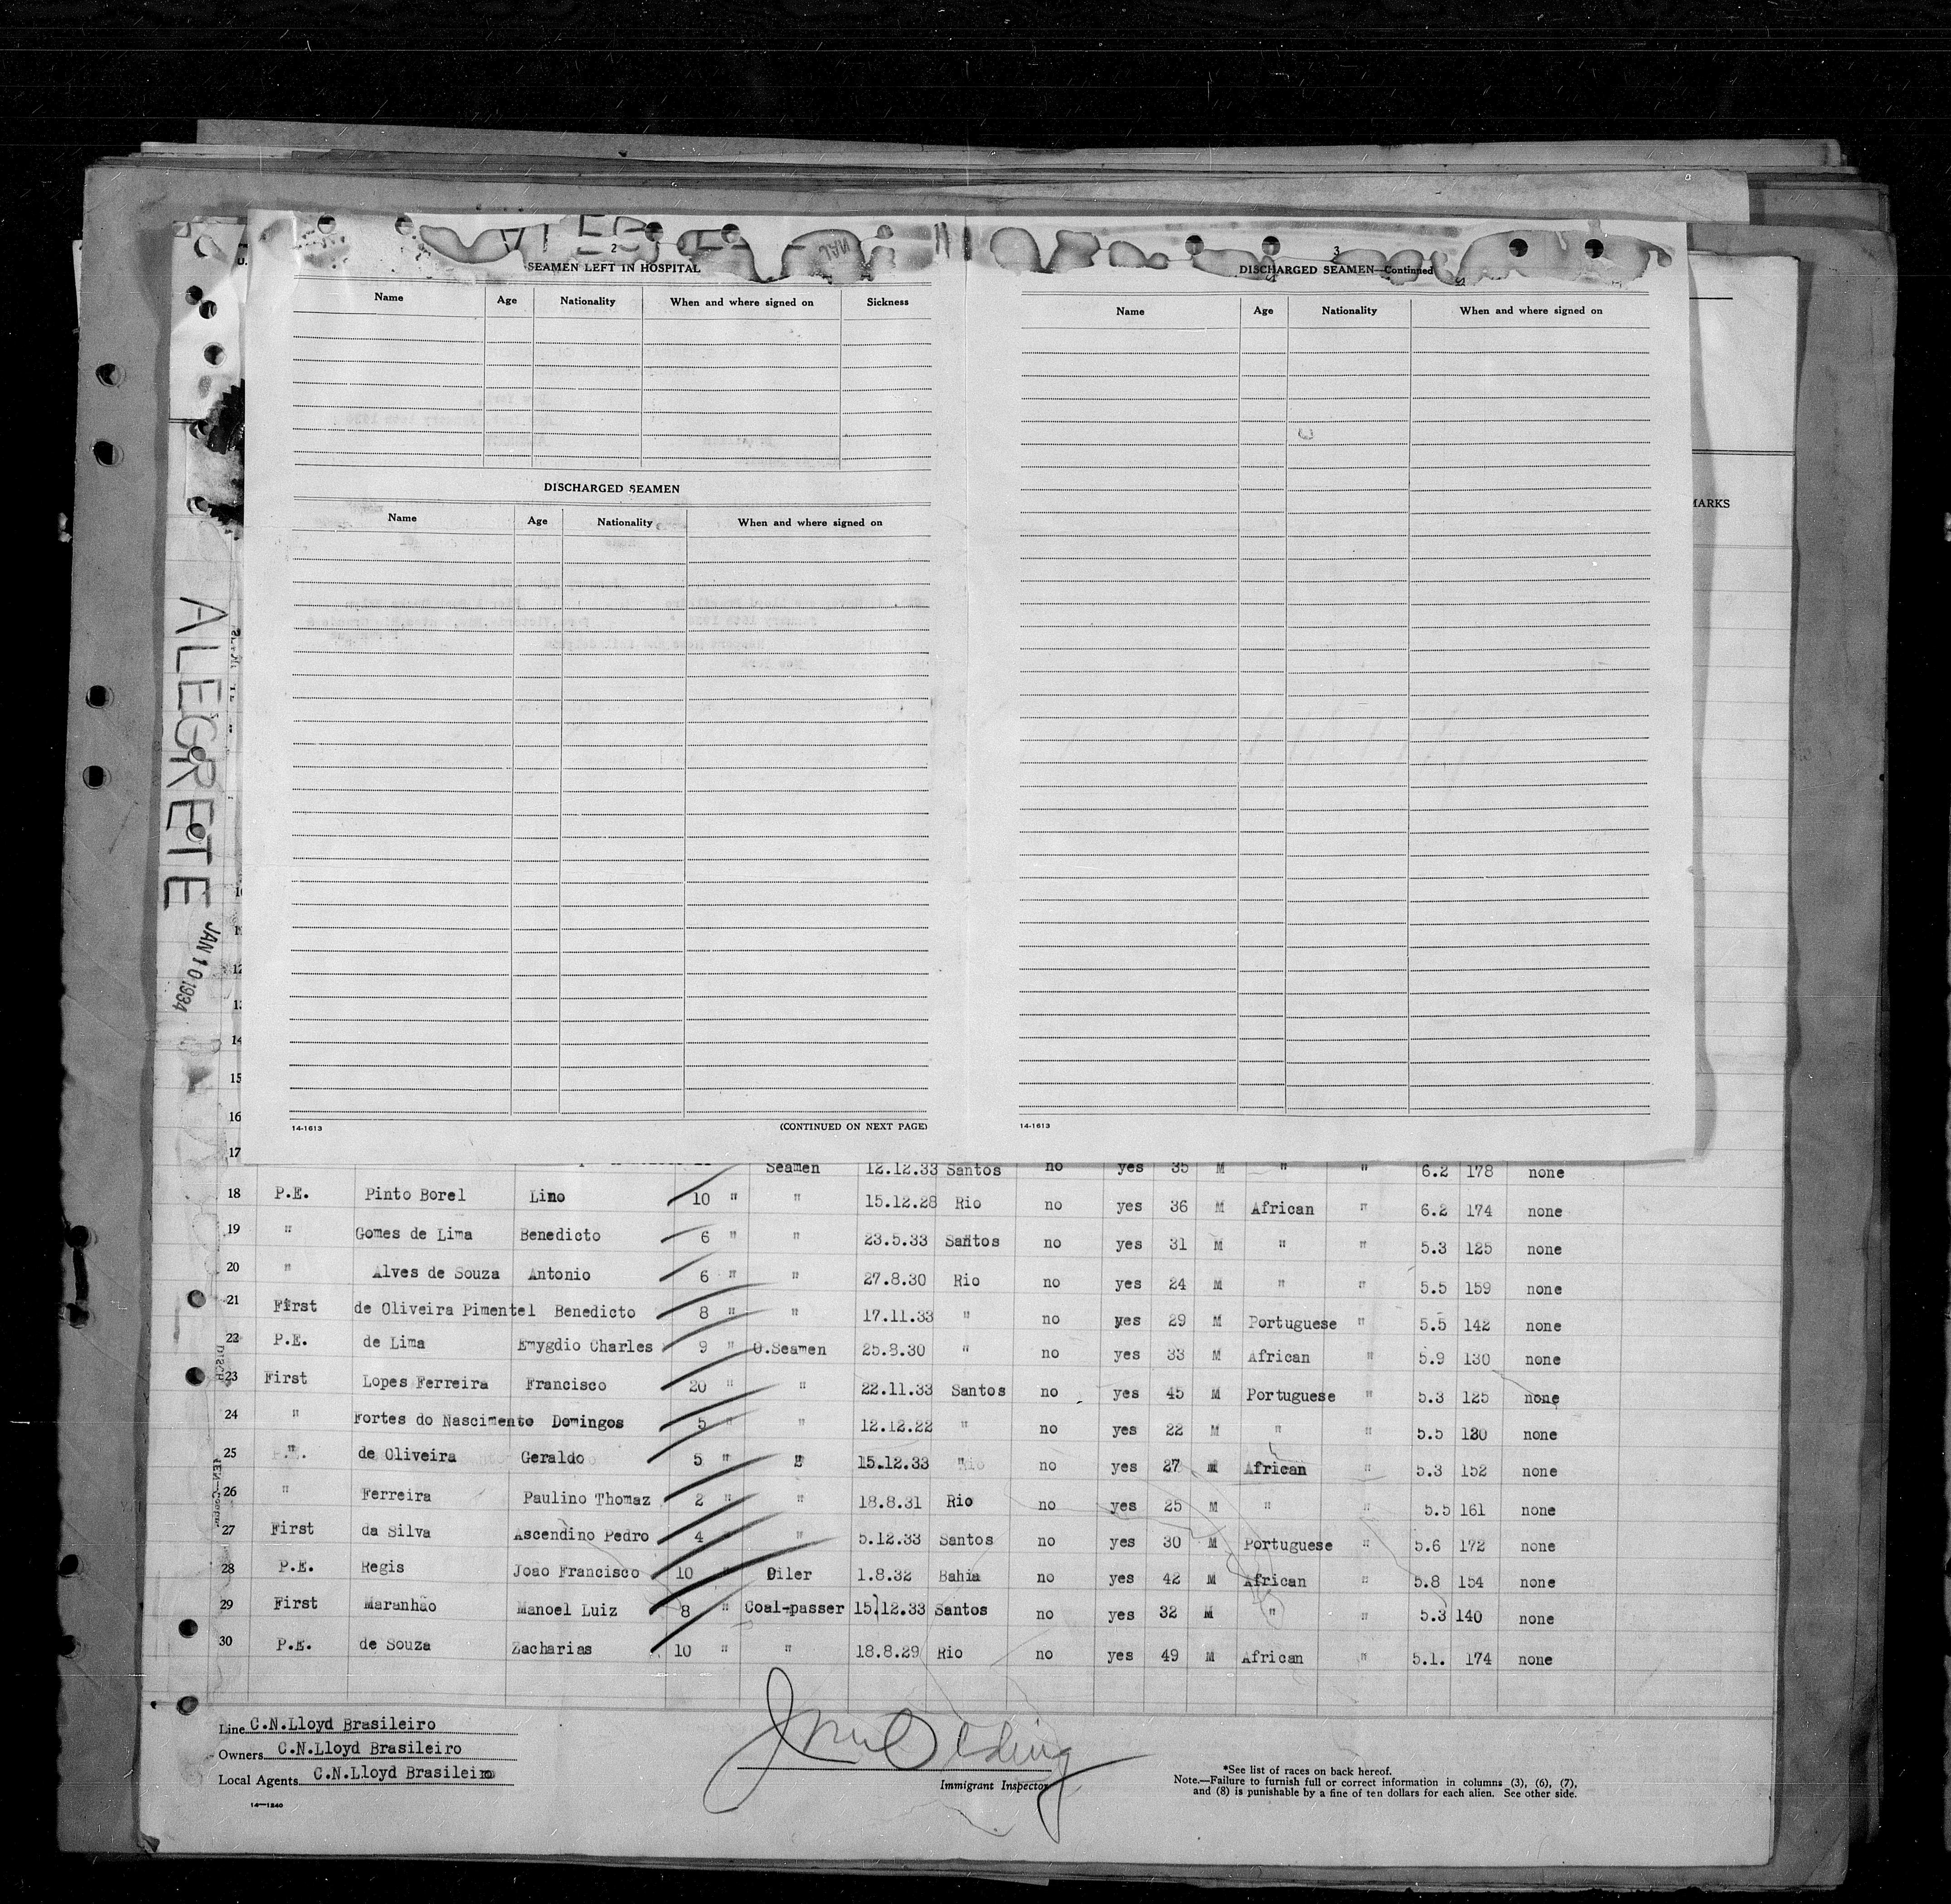 2
SEAMEN LEFT IN HOSPITAL
Name Age Nationality When and where signed on Sickness
DISCHARGED SEAMEN
Name Age Nationality When and where signed on
14-1613 (CONTINUED ON NEXT PAGE)
3
DISCHARGED SEAMEN—Continued
Name Age Nationality When and where signed on
14-1613
ALEGRETE
JAN 10 1934
12
14
15
16
17 Seamen 12.12.33 Santos no yes 35 M " " 6.2 178 none
18 P.E. Pinto Borel Lino 10 " " 15.12.28 Rio no yes 36 M African " 6.2 174 none
19 " Gomes de Lima Benedicto 6 " " 23.5.33 Santos no yes 31 M " " 5.3 125 none
20 " Alves de Souza Antonio 6 " " 27.8.30 Rio no yes 24 M " " 5.5 159 none
21 First de Oliveira Pimentel Benedicto 8 " " 17.11.33 " no yes 29 M Portuguese " 5.5 142 none
22 P.E. de Lima Emygdio Charles 9 " O.Seamen 25.8.30 " no yes 33 M African " 5.9 130 none
23 First Lopes Ferreira Francisco 20 " " 22.11.33 Santos no yes 45 M Portuguese " 5.3 125 none
24 " Fortes do Nascimento Domingos 5 " " 12.12.22 " no yes 22 M " " 5.5 130 none
25 " de Oliveira Geraldo 5 " " 15.12.33 " no yes 27 M African " 5.3 152 none
26 " Ferreira Paulino Thomaz 2 " " 18.8.31 Rio no yes 25 M " " 5.5 161 none
27 First da Silva Ascendino Pedro 4 " " 5.12.33 Santos no yes 30 M Portuguese " 5.6 172 none
28 P.E. Regis Joao Francisco 10 " Oiler 1.8.32 Bahia no yes 42 M African " 5.8 154 none
29 First Maranhão Manoel Luiz 8 " Coal-passer 15.12.33 Santos no yes 32 M " " 5.3 140 none
30 P.E. de Souza Zacharias 10 " " 18.8.29 Rio no yes 49 M African " 5.1. 174 none
Line C.N.Lloyd Brasileiro
Owners C.N.Lloyd Brasileiro
Local Agents C.N.Lloyd Brasileiro
14—1240
Immigrant Inspector
*See list of races on back hereof.
Note.—Failure to furnish full or correct information in columns (3), (6), (7),
and (8) is punishable by a fine of ten dollars for each alien. See other side.